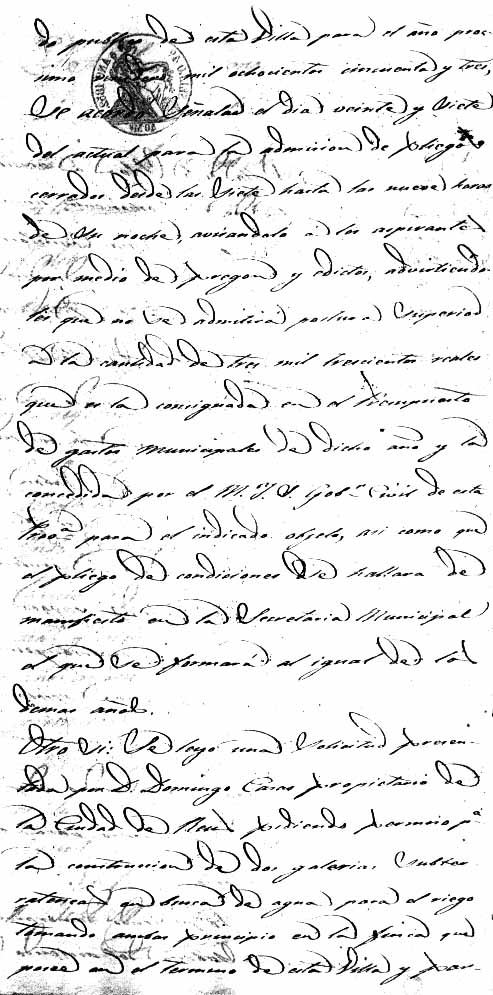 do publico de esta Villa para el año proc-
simo mil ochocientos cincuenta y tres,
Se acordó Señalar el dia veinte y Siete
del actual para la admision de pliegos
cerrados desde las Siete hasta las nueve horas
de Su noche, avisandolo a los aspirantes
por medio de pregon y edictos, advirtiendo
les que no Se admitirá postura Superior
a la cantidad de tres mil trescientos reales
que es la consignada en el Presupuesto
de gastos Municipales de dicho año y la
concedida por el M. Y. S. Gobr. Civil de esta
Prova. para el indicado objeto, asi como que
el pliego de condiciones Se hallara de
manifiesto en la Secretaria Municipal
el que Se formará al igual de los
demas años.
Otro Si: Se leyó una Solicitud presen-
tada por D. Domingo Caras propietario de
la Ciudad de Reus pidiendo permiso pa.
la construccion de dos galerias Subter
raneas en busca de agua para el riego
tomando ambas principio en la finca que
posee en el termino de esta Villa y par-